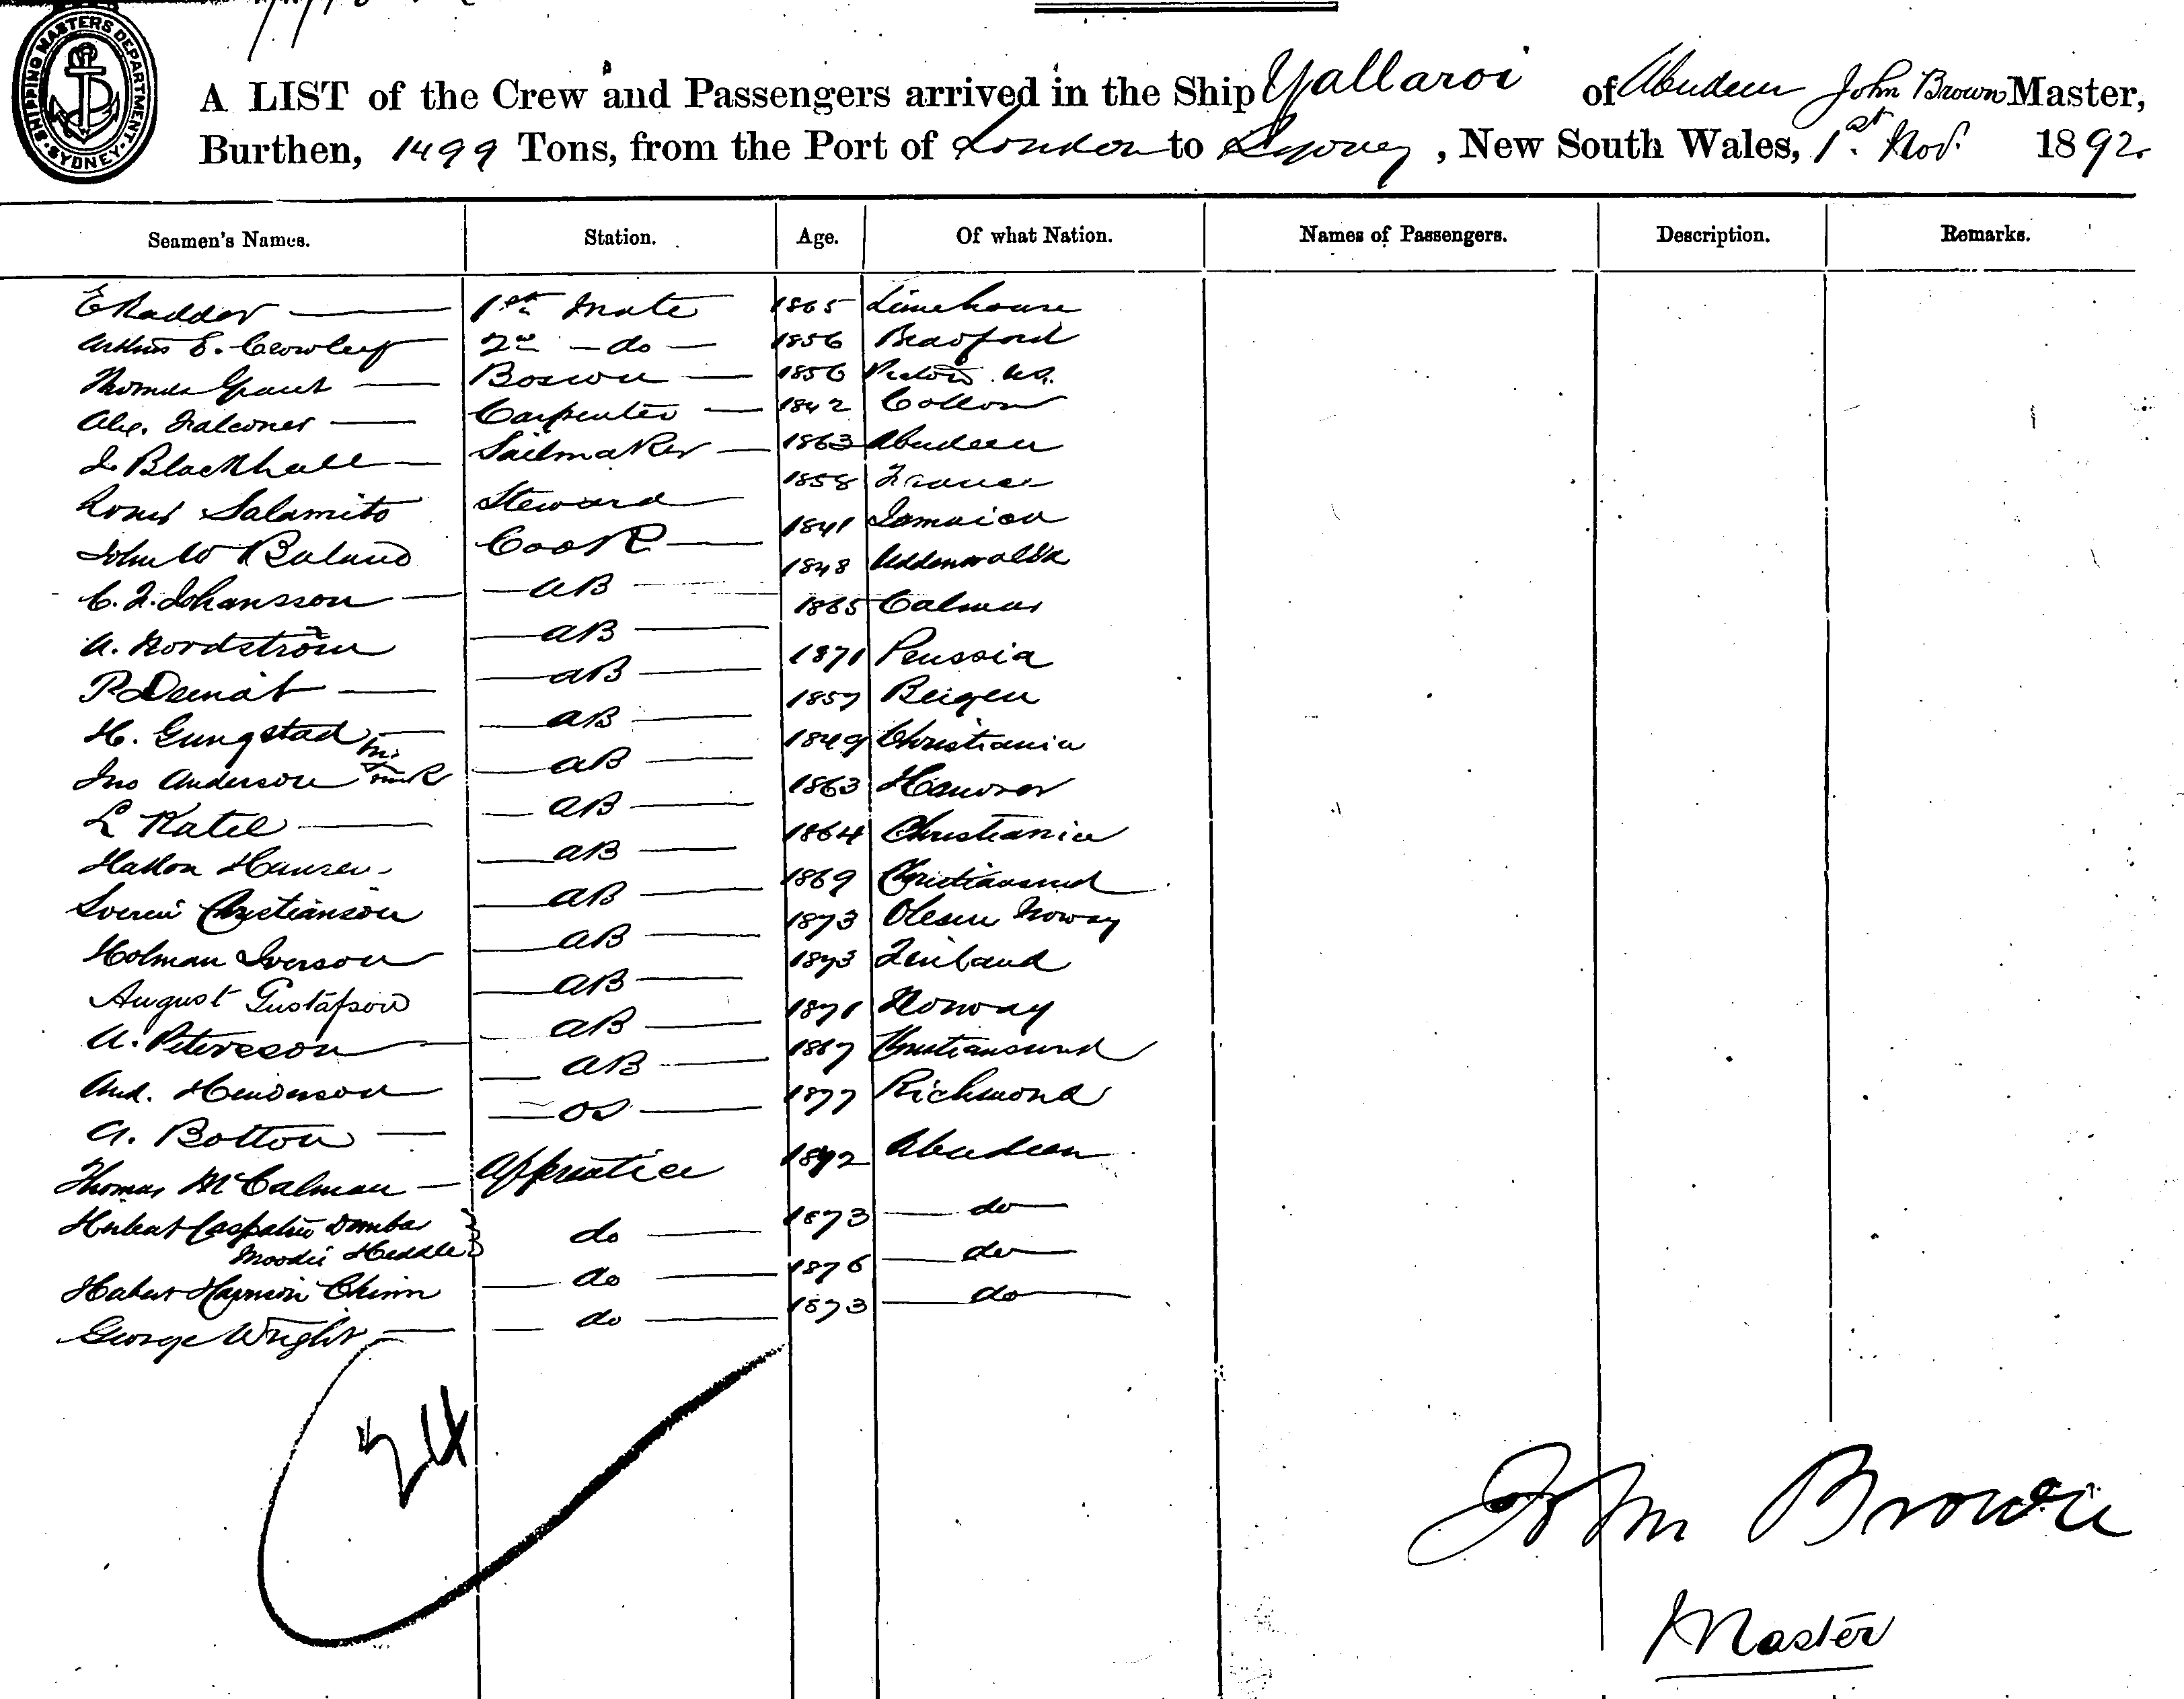 SHIPPING MASTERS DEPARTMENT. SYDNEY.
A LIST of the Crew and Passengers arrived in the Ship Yallaroi of Aberdeen John Brown Master,
Burthen, 1499 Tons, from the Port of London to Sydney, New South Wales, 1st Nov. 1892.
Seamen's Names. Station. Age. Of what Nation. Names of Passengers. Description. Remarks.
1st Mate 1865 Limehouse
Arthur E. Crowley 2nd - do - 1856 Bradford
Thomas Grant Boswn 1856
Alex. Falconer Carpenter 1842
J Blackhall Sailmaker 1863 Aberdeen
Louis Salamito Steward 1858 France
John W Cook 1841 Jamaica
C. F. Johansson AB 1848
A. Nordström AB 1865 Calmar
P AB 1871 Prussia
H. Gungstad AB 1857 Bergen
Jno Anderson AB 1849 Christiania
L Katel AB 1863 Hanover
Hakon Hansen AB 1864 Christiania
Christianson AB 1869 Christiansund
Holman Iverson AB 1873 Norway
August Gustafson AB 1873 Finland
A. Petersson AB 1871 Norway
And. Henderson AB 1867 Christiansund
A. Botton OS 1877 Richmond
Thomas McCalman Apprentice 1872 Aberdeen
Herbert Dunbar
Moodie Heddle do 1873 do
Harrison Chinn do 1876 do
George Wright do 1873 do
24
John Brown
Master